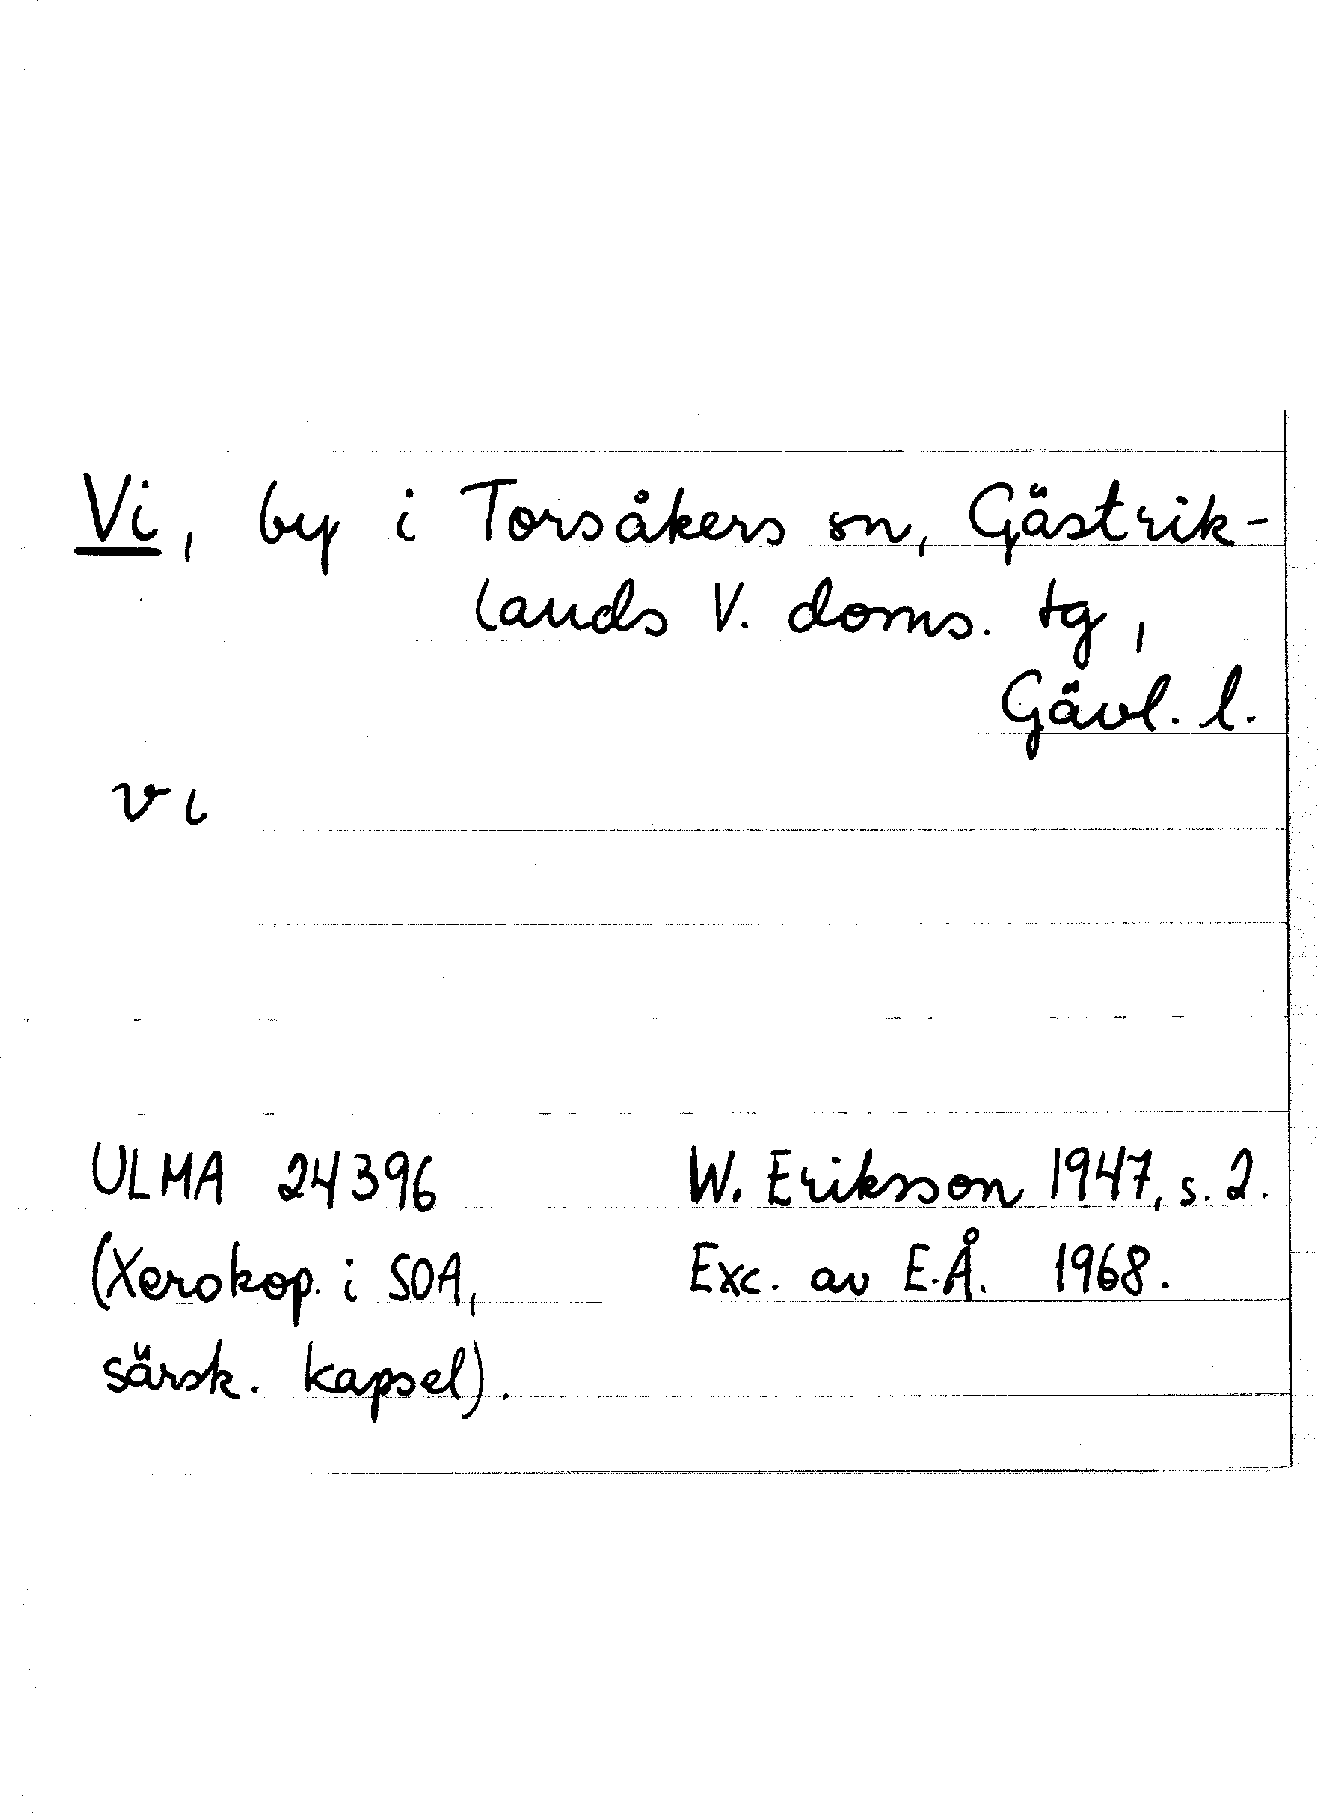 Vi, by i Torsåkers sn, Gästrik-
lands V. doms. tg,
Gävl. l.
vɩ
ULMA 24396
(Xerokop. i SOA,
särsk. kapsel).
W. Eriksson 1947, s. 2.
Exc. av E.Å. 1968.